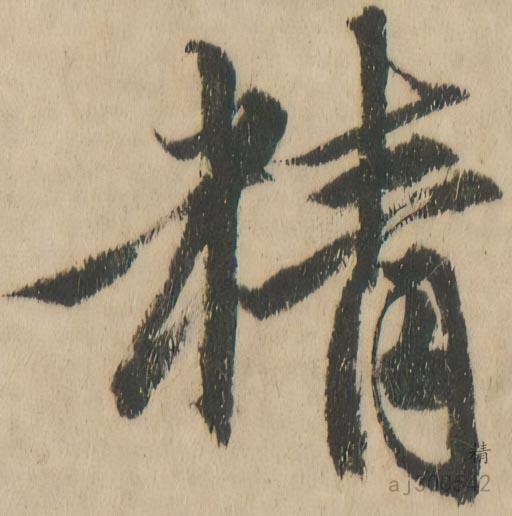 精
精
ajs08542